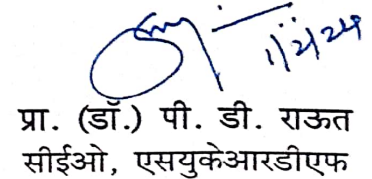 1/2/24
प्रा. (डॉ.) पी. डी. राऊत
सीईओ, एसयुकेआरडीएफ